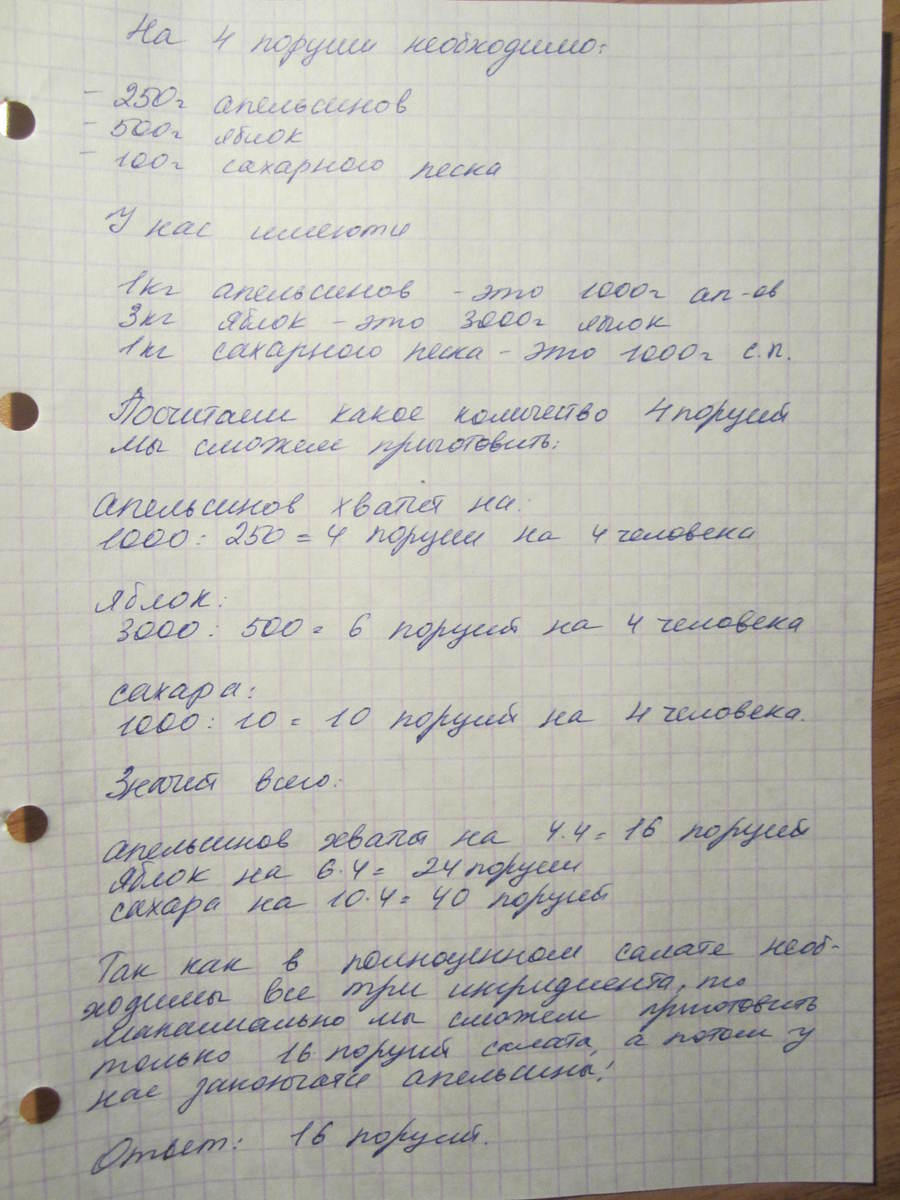 На 4 порции необходимо:
- 250г апельсинов
- 500г яблок
- 100г сахарного песка
У нас имеются
1кг апельсинов - это 1000г ап-ов
3кг яблок - это 3000г яблок
1кг сахарного песка - это 1000г с.п.
Посчитаем какое количество 4 порций
мы сможем приготовить:
Апельсинов хватит на:
1000 : 250 = 4 порции на 4 человека
яблок:
3000 : 500 = 6 порций на 4 человека
сахара:
1000 : 10 = 10 порций на 4 человека.
Значит всего:
апельсинов хватит на 4·4 = 16 порций
яблок на 6·4 = 24 порции
сахара на 10·4 = 40 порций
Так как в полноценном салате необ-
ходимы все три ингридиента, то
максимально мы сможем приготовить
только 16 порций салата, а потом у
нас закончатся апельсины!
Ответ: 16 порций.